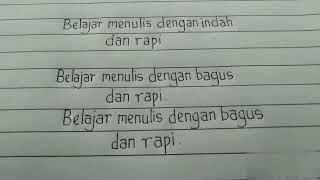 Belajar menulis dengan indah
dan rapi
Belajar menulis dengan bagus
dan rapi.
Belajar menulis dengan bagus
dan rapi.